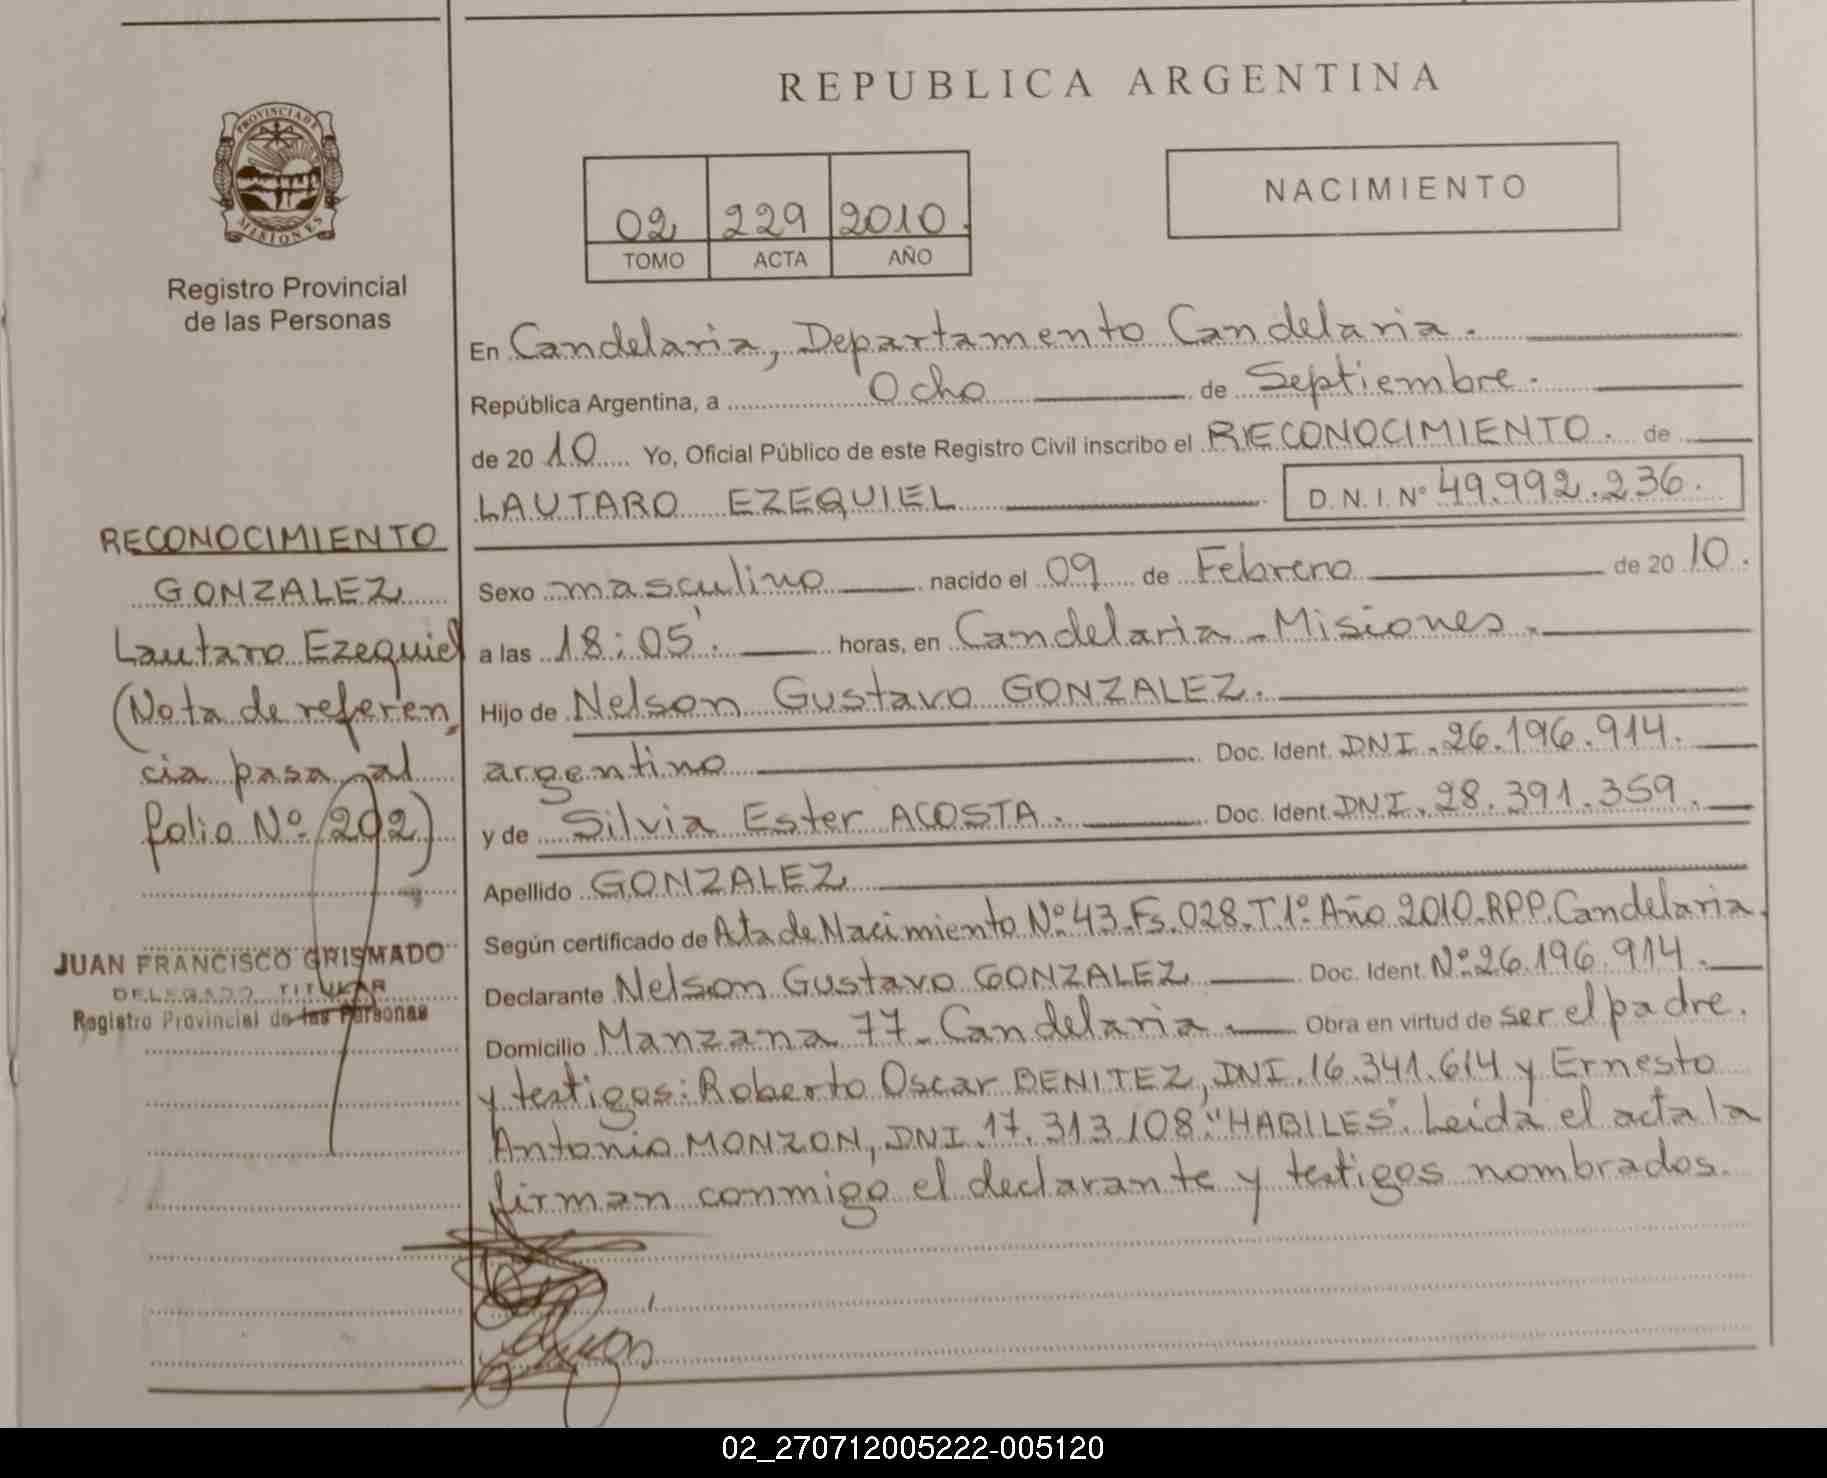 REPUBLICA ARGENTINA
PROVINCIA DE
MISIONES
Registro Provincial
de las Personas
02 229 2010.
TOMO ACTA AÑO
NACIMIENTO
En Candelaria, Departamento Candelaria.
República Argentina, a Ocho de Septiembre.
de 20 10 Yo, Oficial Público de este Registro Civil inscribo el RECONOCIMIENTO. de
LAUTARO EZEQUIEL D.N.I. N° 49.992.236.
Sexo masculino nacido el 09 de Febrero de 20 10.
a las 18:05'. horas, en Candelaria - Misiones.
Hijo de Nelson Gustavo GONZALEZ.
argentino Doc. Ident. DNI. 26.196.914.
y de Silvia Ester ACOSTA. Doc. Ident. DNI. 28.391.359.
Apellido GONZALEZ
Según certificado de Ata de Nacimiento N° 43. Fs. 028. T. 1° Año 2010. RPP. Candelaria.
Declarante Nelson Gustavo GONZALEZ Doc. Ident. N° 26.196.914.
Domicilio Manzana 77 - Candelaria. Obra en virtud de ser el padre.
y testigos: Roberto Oscar BENITEZ, DNI. 16.341.614 y Ernesto
Antonio MONZON, DNI. 17.313.108. "HABILES". Leida el acta la
firman conmigo el declarante y testigos nombrados.
RECONOCIMIENTO
GONZALEZ
Lautaro Ezequiel
(Nota de referen,
cia pasa al
folio N° 202)
JUAN FRANCISCO GRISMADO
DELEGADO TITULAR
Registro Provincial de las Personas
02_270712005222-005120